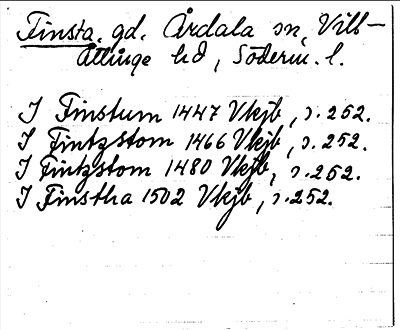 Finsta, gd. Årdala sn, Vill-
åttinge hd, Söderm. l.
I Finstum 1447 Vkjb, s. 252.
I Fintzstom 1466 Vkjb, s. 252.
I Fintzstom 1480 Vkjb, s. 252.
I Finstha 1502 Vkjb, s. 252.